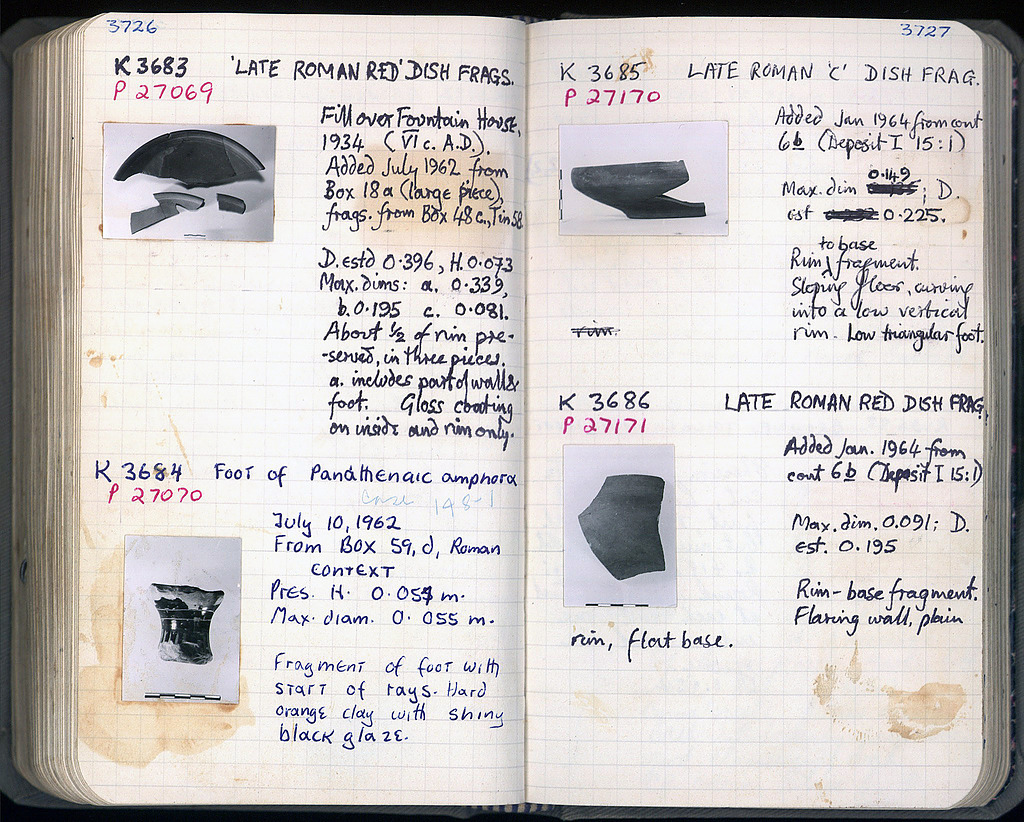 3726
K 3683 'LATE ROMAN RED' DISH FRAGS.
P 27069
Fill over Fountain House,
1934 (VI c. A.D.).
Added July 1962 from
Box 18a (large piece),
frags. from Box 48c., Tin 58.
D. estd 0.396, H. 0.073
Max. dims: a. 0.339,
b. 0.195 c. 0.081.
About ½ of rim pre-
-served, in three pieces.
a. includes part of wall &
foot. Gloss coating
on inside and rim only.
K 3684 Foot of Panathenaic amphora
P 27070
Case 148-1
July 10, 1962
From Box 59, d, Roman
context
Pres. H. 0.051 m.
Max. diam. 0.055 m.
Fragment of foot with
start of rays. Hard
orange clay with shiny
black glaze.
3727
K 3685 LATE ROMAN 'C' DISH FRAG.
P 27170
Added Jan 1964 from cont
6b (Deposit I 15:1)
0.149
Max. dim ; D.
est 0.225.
to base
Rim fragment.
Sloping floor, curving
into a low vertical
rim. Low triangular foot.
rim.
K 3686 LATE ROMAN RED DISH FRAG.
P 27171
Added Jan. 1964 from
cont 6b (Deposit I 15:1)
Max. dim. 0.091; D.
est. 0.195
Rim-base fragment.
Flaring wall, plain
rim, flat base.